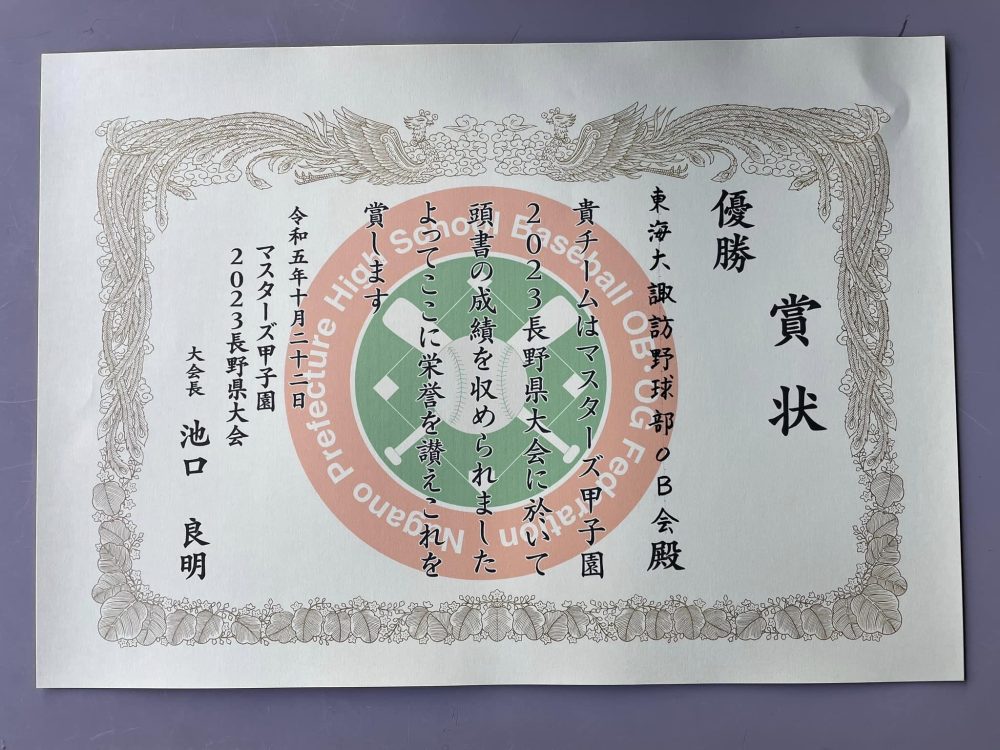 賞状
優勝
東海大諏訪野球部OB会殿
貴チームはマスターズ甲子園
2023長野県大会に於いて
頭書の成績を収められました
よってここに栄誉を讃えこれを
賞します
令和五年十月二十二日
マスターズ甲子園
2023長野県大会
大会長 池口 良明
Nagano Prefecture High School Baseball OB.OG Federation